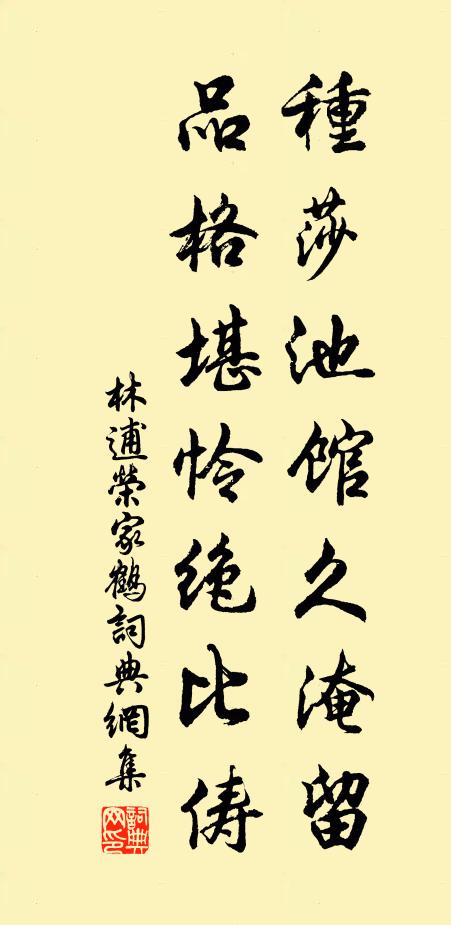 種莎池館久淹留
品格堪怜絶比俦
林逋榮家鶴詞典網集
詞典网印